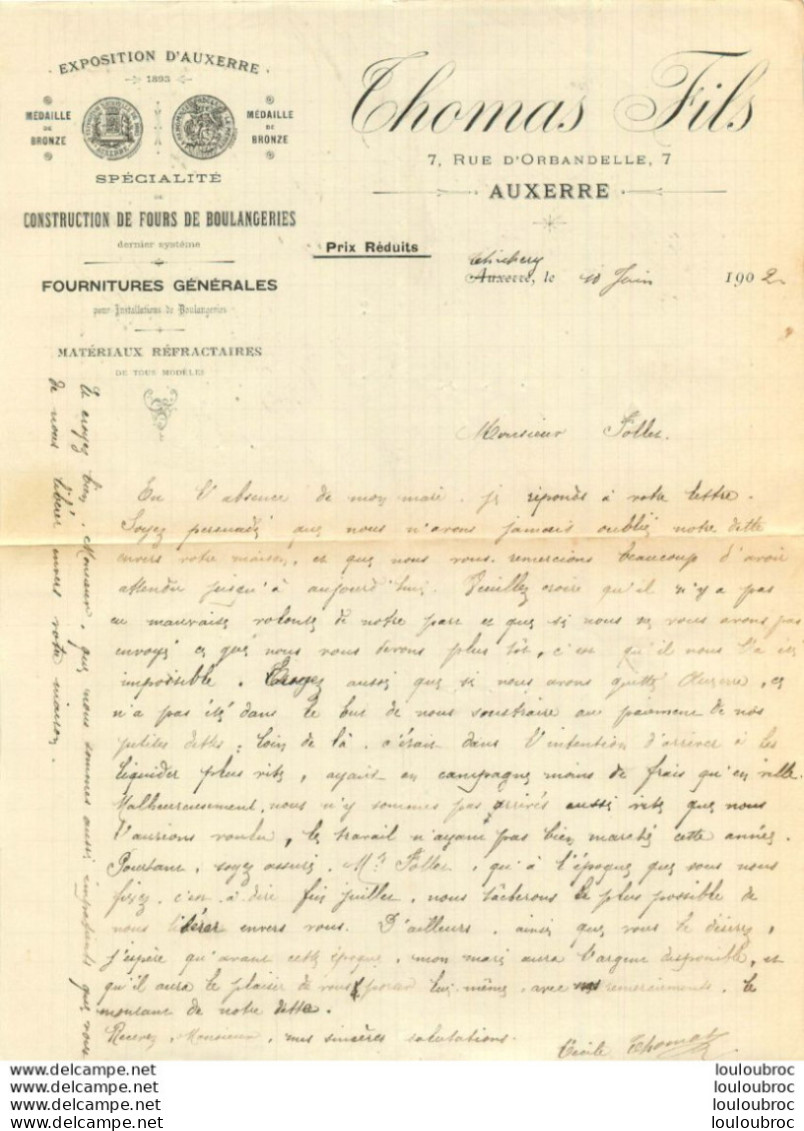 EXPOSITION D'AUXERRE
1893
MÉDAILLE DE BRONZE
MÉDAILLE DE BRONZE
SPÉCIALITÉ
DE
CONSTRUCTION DE FOURS DE BOULANGERIES
dernier système
FOURNITURES GÉNÉRALES
pour Installations de Boulangeries
MATÉRIAUX RÉFRACTAIRES
DE TOUS MODÈLES
Thomas Fils
7, RUE D'ORBANDELLE, 7
AUXERRE
Prix Réduits
Auxerre, le 10 Juin 1902
Monsieur Follet.
En l'absence de mon mari je réponds à votre lettre.
Soyez persuadé que nous n'avons jamais oublié notre dette
envers votre maison, et que nous vous remercions beaucoup d'avoir
attendu jusqu'à aujourd'hui. Veuillez croire qu'il n'y a pas
eu mauvaise volonté de notre part et que si nous ne vous avons pas
envoyé ce que nous vous devons plus tôt, c'est qu'il nous l'a été
impossible. Croyez aussi que si nous avons quitté Auxerre, ce
n'a pas été dans le but de nous soustraire au paiement de nos
petites dettes; loin de là, c'était dans l'intention d'arriver à les
liquider plus vite, ayant en campagne moins de frais qu'en ville.
Malheureusement, nous n'y sommes pas arrivés aussi vite que nous
l'aurions voulu, le travail n'ayant pas bien marché cette année.
Pourtant, soyez assuré, Mr Follet, qu'à l'époque que vous nous
fixez, c'est à dire fin juillet, nous tâcherons le plus possible de
nous libérer envers vous. D'ailleurs, ainsi que vous le désirez,
j'espère qu'avant cette époque, mon mari aura l'argent disponible, et
qu'il aura le plaisir de vous porter lui-même, avec nos remerciements, le
montant de notre dette.
Recevez, Monsieur, mes sincères salutations.
Cécile Thomas
Et croyez bien, Monsieur, que nous sommes aussi impatients que vous
de nous libérer envers votre maison.
louloubroc
louloubroc
louloubroc
louloubroc
louloubroc
louloubroc
louloubroc
louloubroc